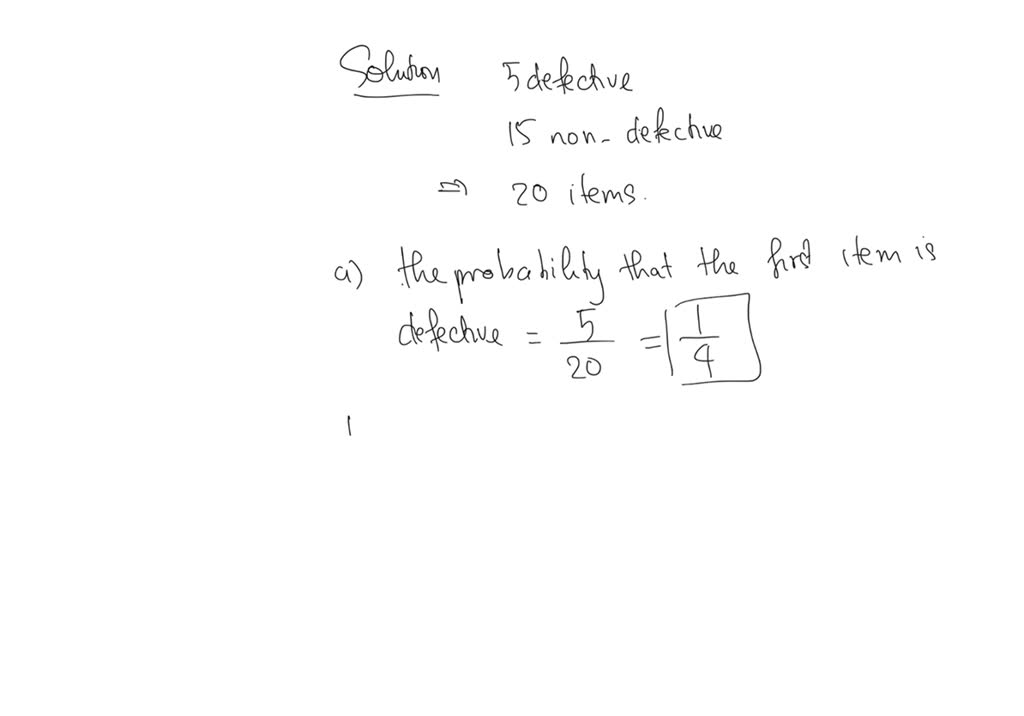 Solution 5 defective
15 non-defective
⇒ 20 items.
a) the probability that the first item is
defective = 5/20 = 1/4